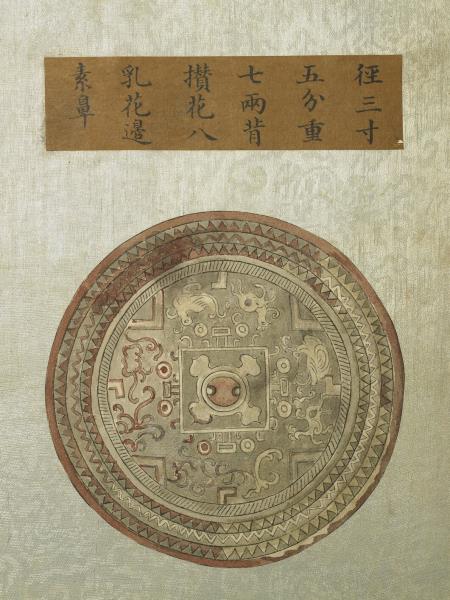 徑三寸
五分重
七兩背
攢花八
乳花邊
素鼻